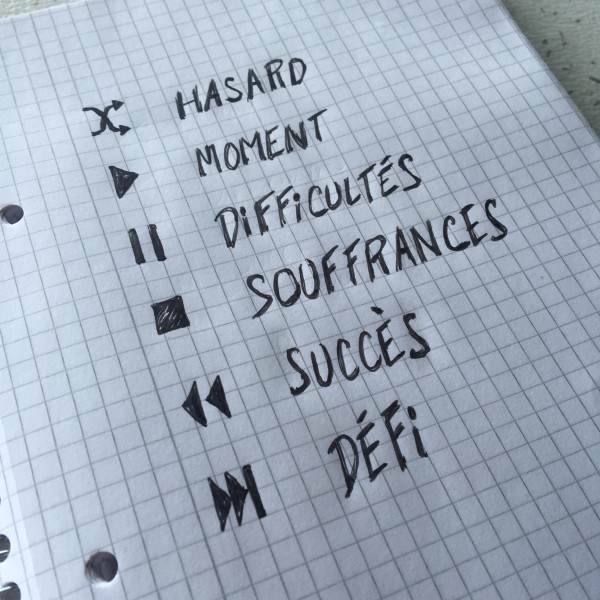 HASARD
MOMENT
DiFFiCULTÉS
SOUFFRANCES
SUCCÈS
DÉFi